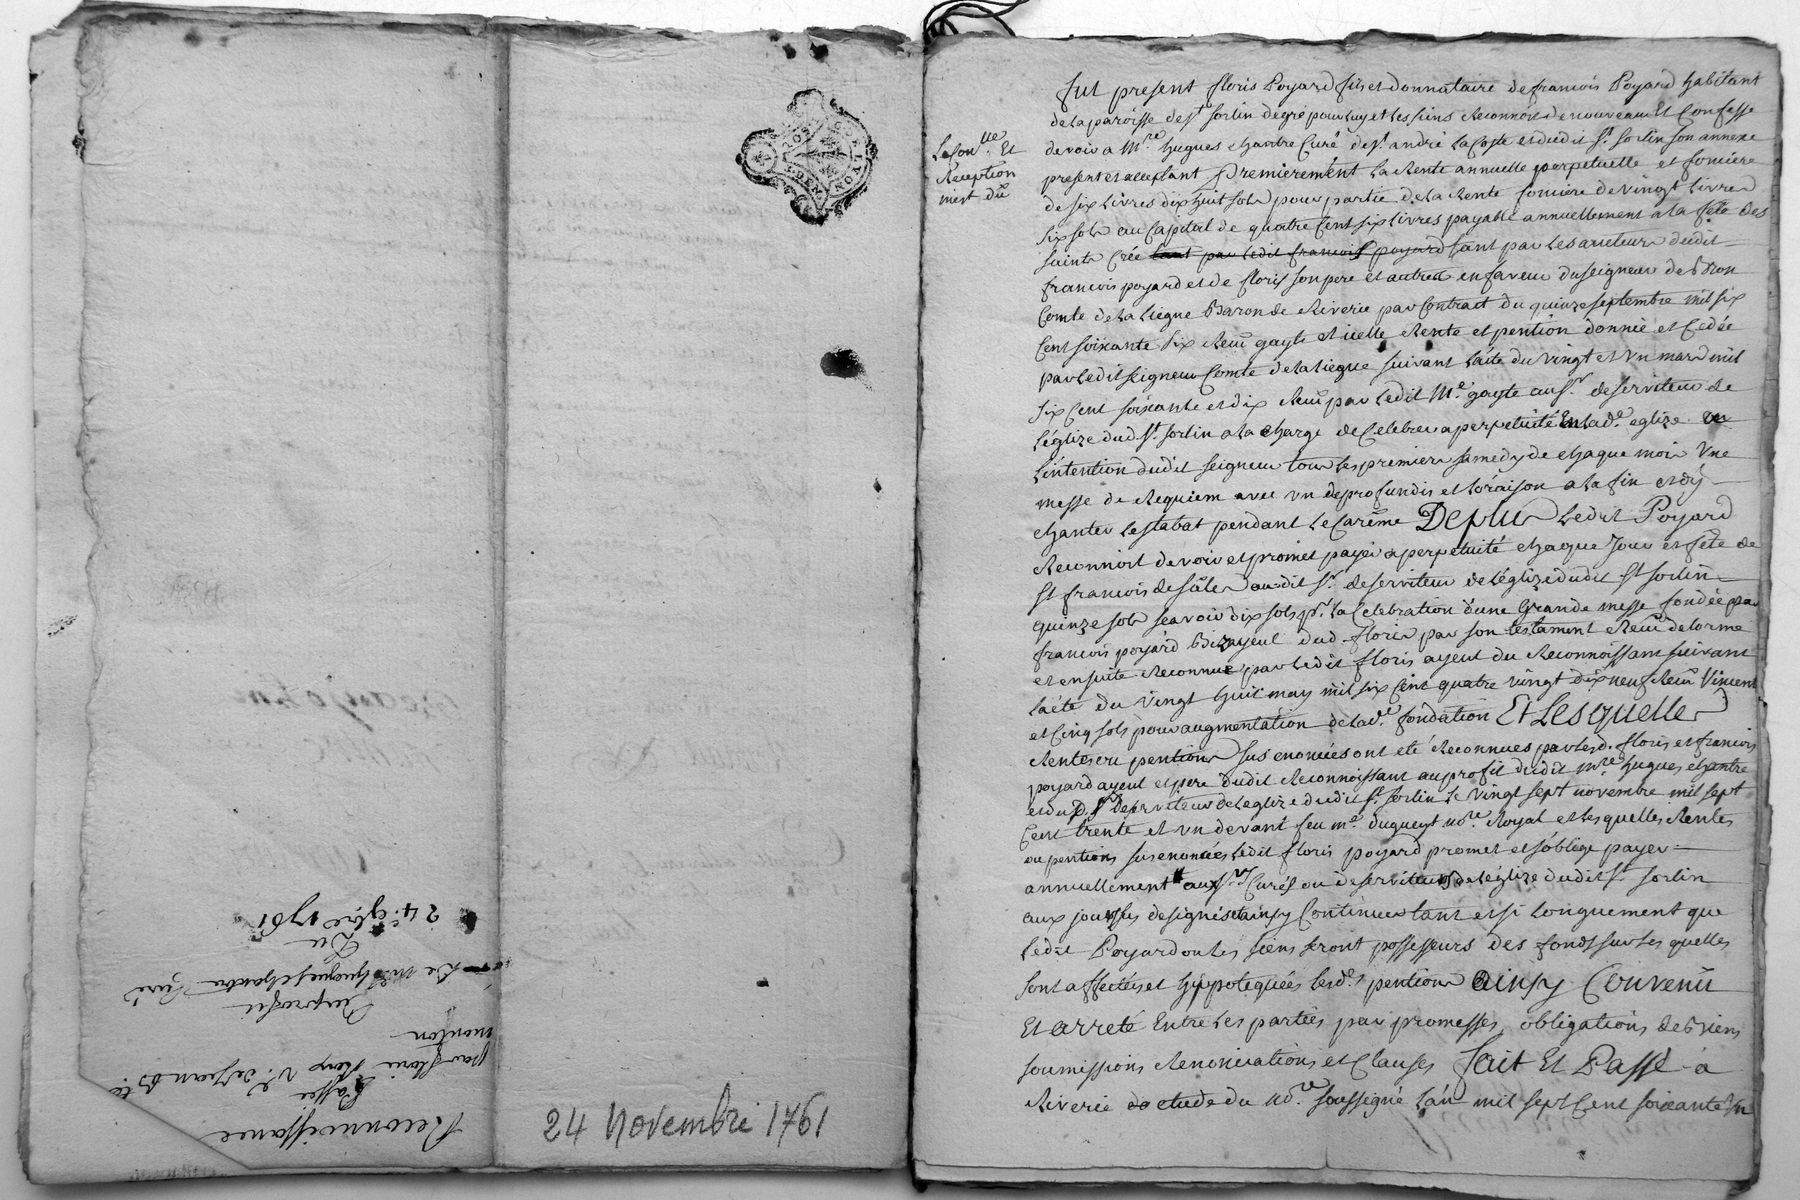 Reconnoissance
passée
par fleurie
Du profit
De Mre hugues chantre Curé
Du
24 9bre 1761
24 Novembre 1761
Et
Reception
n'est dû
fut present floris Poyard fils et donnataire de francois Poyard habitant
de la paroisse de st sorlin de gré pour luy et les siens Reconnoit de nouveau Et Confesse
devoir a Mre hugues chantre Curé de st andré la Coste et dudit st sorlin son annexe
present et acceptant Premierement la Rente annuelle perpetuelle et fonciere
de six livres dix huit sols pour partie de la Rente fonciere de vingt livres
six sols au Capital de quatre Cent six livres payable annuellement a la fête des
saints Créé tant par ledit francois poyard tant par les auteurs dudit
francois poyard et de floris son pere et autres en faveur du seigneur de Bron
Comte de la Liegue Baron de Riverie par Contract du quinze septembre mil six
Cent soixante six Reçu gayte et icelle Rente et pention donnée et Cedée
par ledit seigneur Comte de la liegue suivant l'acte du vingt et un mars mil
six Cent soixante et dix Reçu par ledit Me gayte au sr deserviteur de
l'églize dud. st sorlin a la charge de Celebrer a perpetuité En lad.e eglize
L'intention dudit seigneur tous les premiers samedy de chaque mois Une
messe de Requiem avec un deprofundis et l'oraison a la fin et d'y
chanter le stabat pendant le Carême De plus ledit Poyard
Reconnoit devoir et promet payer a perpetuité chaque Jour et fête de
st francois de sâles audit sr deserviteur de l'églize dudit st sorlin
quinze sols scavoir dix sols pr la Celebration d'une Grande messe fondée par
francois poyard Bizayeul dud. floris par son testament Reçu delorme
et ensuite Reconnue par ledit floris ayeul du Reconnoissant suivant
l'acte du vingt huit may mil six Cent quatre vingt dix neuf Reçu Vincent
et Cinq sols pour augmentation de lad.e fondation Et Lesquelles
Rentes ou pentions sus enoncées ont eté Reconnues par lesd. floris et francois
poyard ayeul et pere dudit Reconnoissant au profit dudit mre hugues chantre
et du d. sr deserviteur de l'eglize dudit st sorlin le vingt sept novembre mil sept
Cent trente et un devant feu me dugueyt nore Royal et les quelles Rentes
ou pentions sus enoncées ledit floris poyard promet et s'oblige payer
annuellement aux srs Curés ou deserviteurs de l'église dudit st sorlin
aux jours sus designés et ainsy Continuer tant et si longuement que
ledit Poyard ou les siens seront possesseurs des fonds sur les quelles
sont affectées et hippotequées lesd.es pentions Ainsy Convenu
Et arreté Entre les parties par promesses obligations de biens
soumissions Renonciations et Clauses Fait Et Passé a
Riverie etude du nore soussigné l'an mil sept Cent soixante un